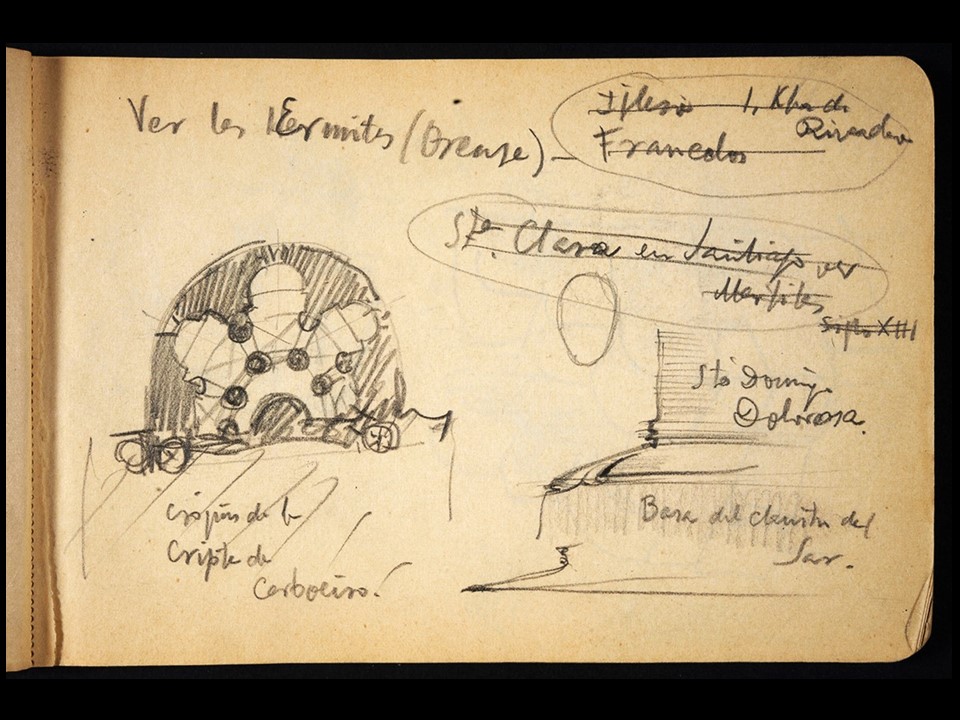 Ver las Ermitas (Orense) —
Iglesia 1, Km de
Rivadavia
Francelos
Sta. Clara en Santiago ver
siglo XIII
Sto Domingo
Dolorosa.
Croquis de la
Cripta de
Carboeiro.
Base del claustro del
Sar.